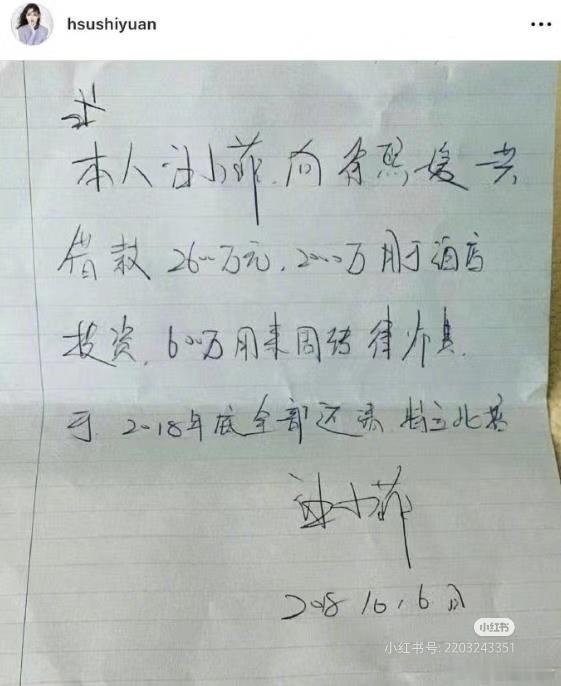 hsushiyuan
本人汪小菲,向徐熙媛共
借款2600万元,2000万用于酒店
投资,600万用来周转律师费.
于2018年底全部还清 特立此据
汪小菲
2018 10,6日
小红书
小红书号: 2203243351